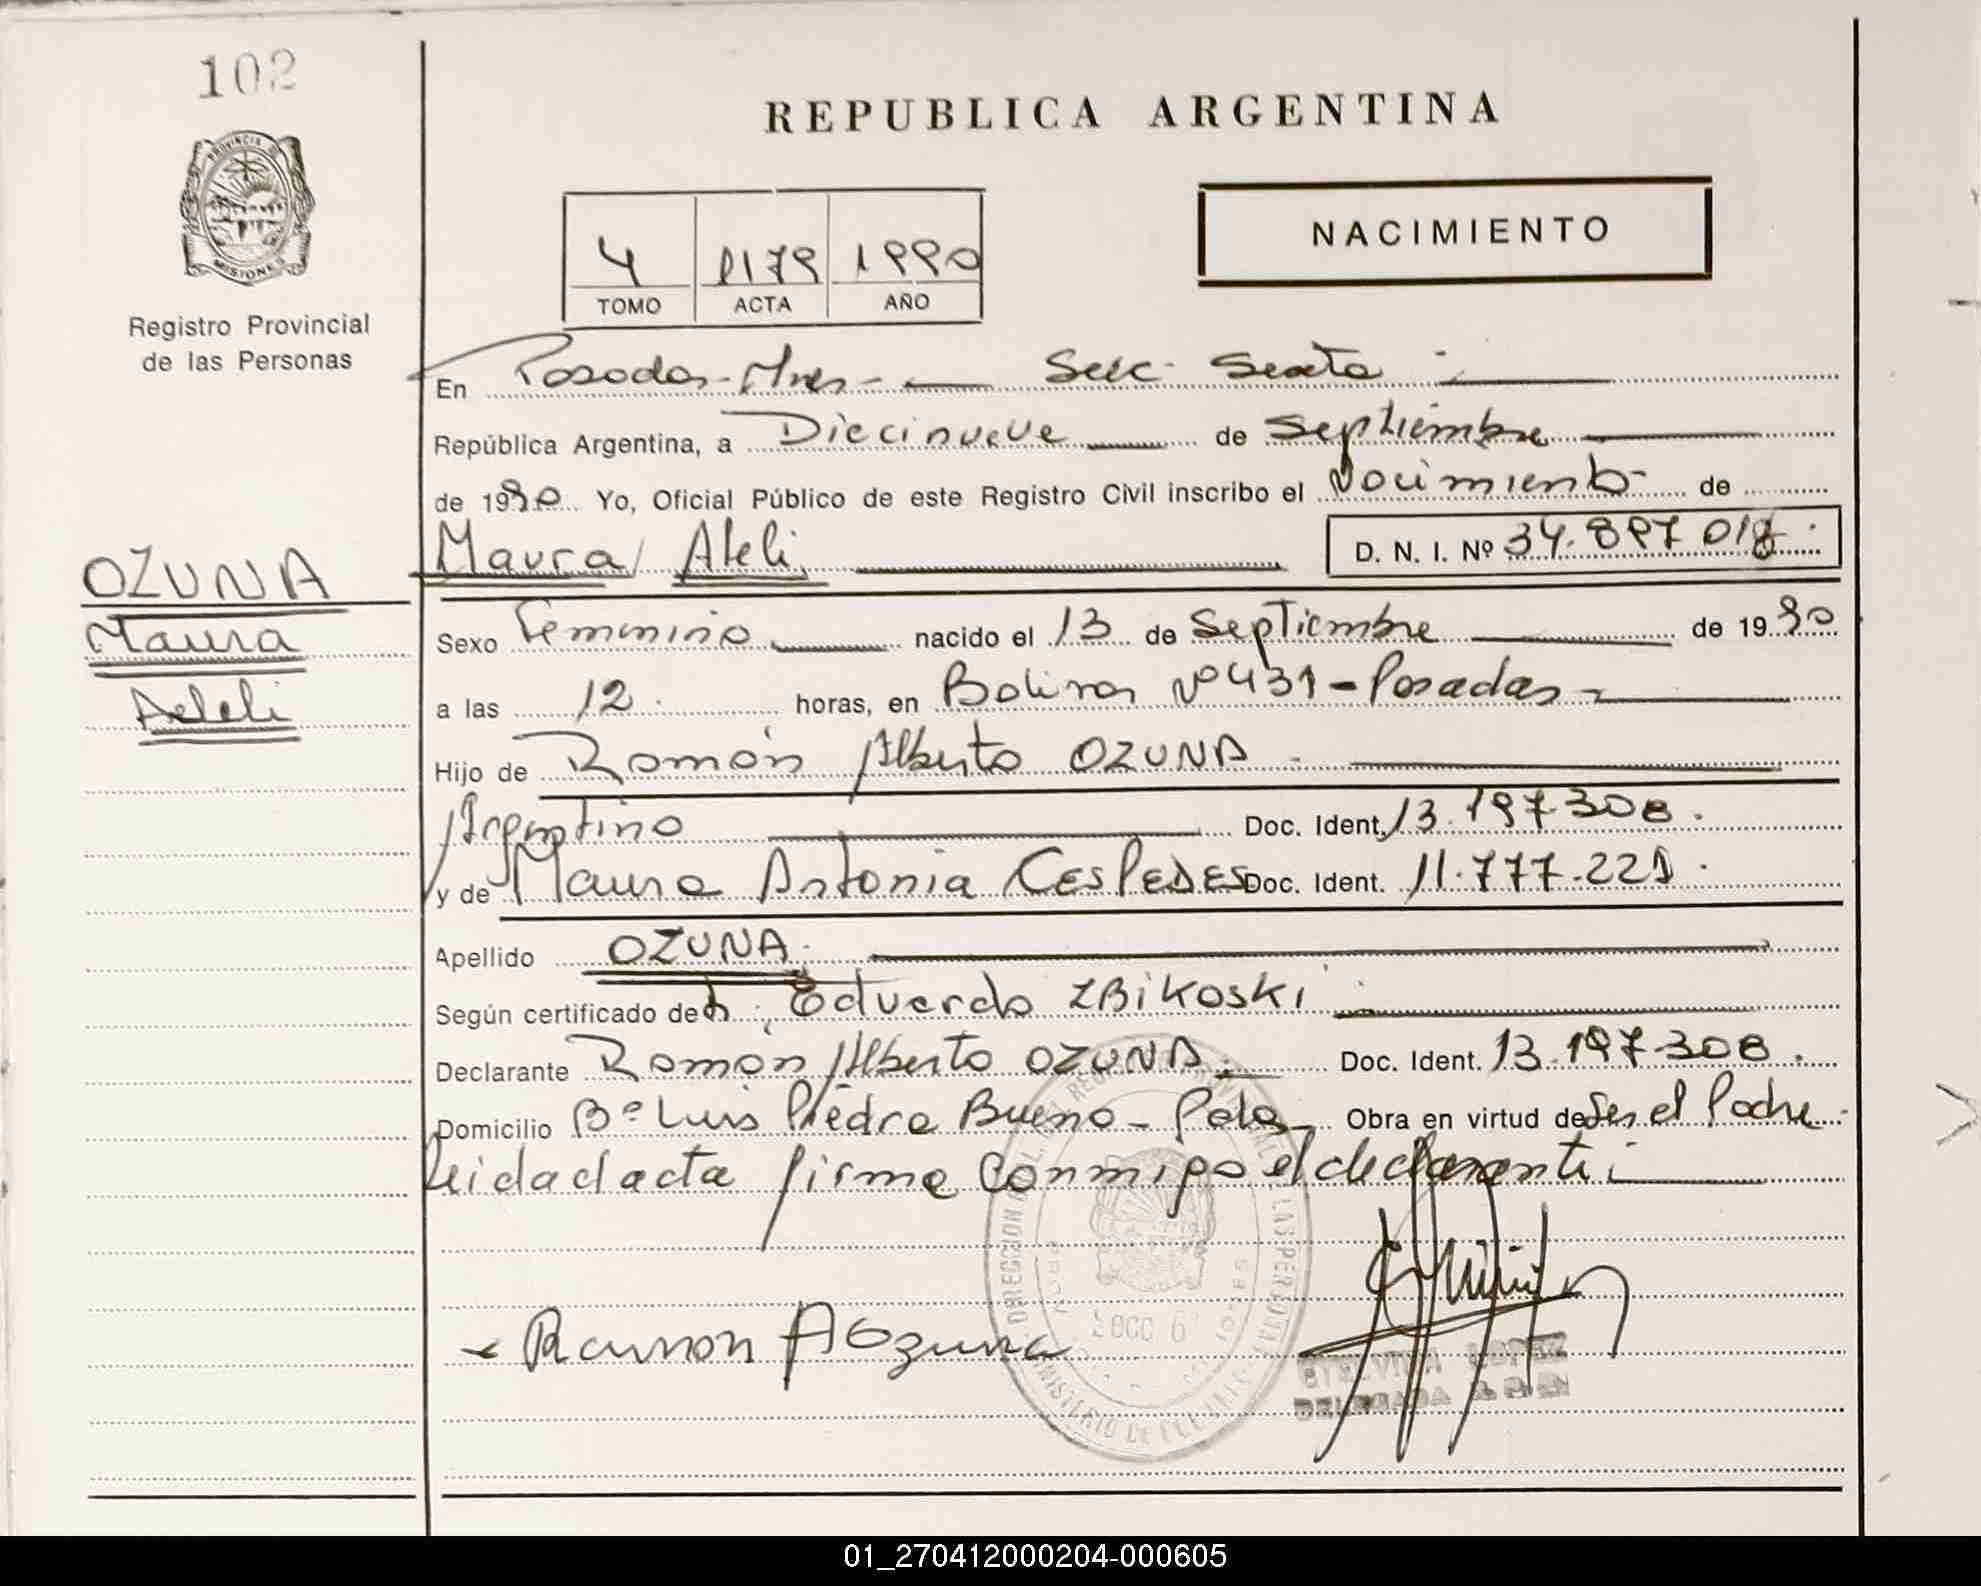 102
PROVINCIA DE
MISIONES
Registro Provincial
de las Personas
REPUBLICA ARGENTINA
NACIMIENTO
4 1179 1990
TOMO ACTA AÑO
En Posadas-Mnes- Secc. Sexta
República Argentina, a Diecinueve de Septiembre
de 1990 Yo, Oficial Público de este Registro Civil inscribo el Nacimiento de
Maura Aleli D. N. I. Nº 34.897.018
OZUNA
Maura
Aleli
Sexo Femenino nacido el 13 de Septiembre de 1990
a las 12 horas, en Bolivar Nº 431-Posadas
Hijo de Ramón Alberto OZUNA
Argentino Doc. Ident. 13.197.308
y de Maura Antonia CESPEDES Doc. Ident. 11.777.221
Apellido OZUNA
Según certificado de Eduardo ZBIKOSKI
Declarante Ramón Alberto OZUNA Doc. Ident. 13.197.308
Domicilio Bº Luis Piedra Buena - Pdas Obra en virtud de Ser el Padre
Leida el acta firma conmigo el declarante
Ramon A Ozuna
01_270412000204-000605